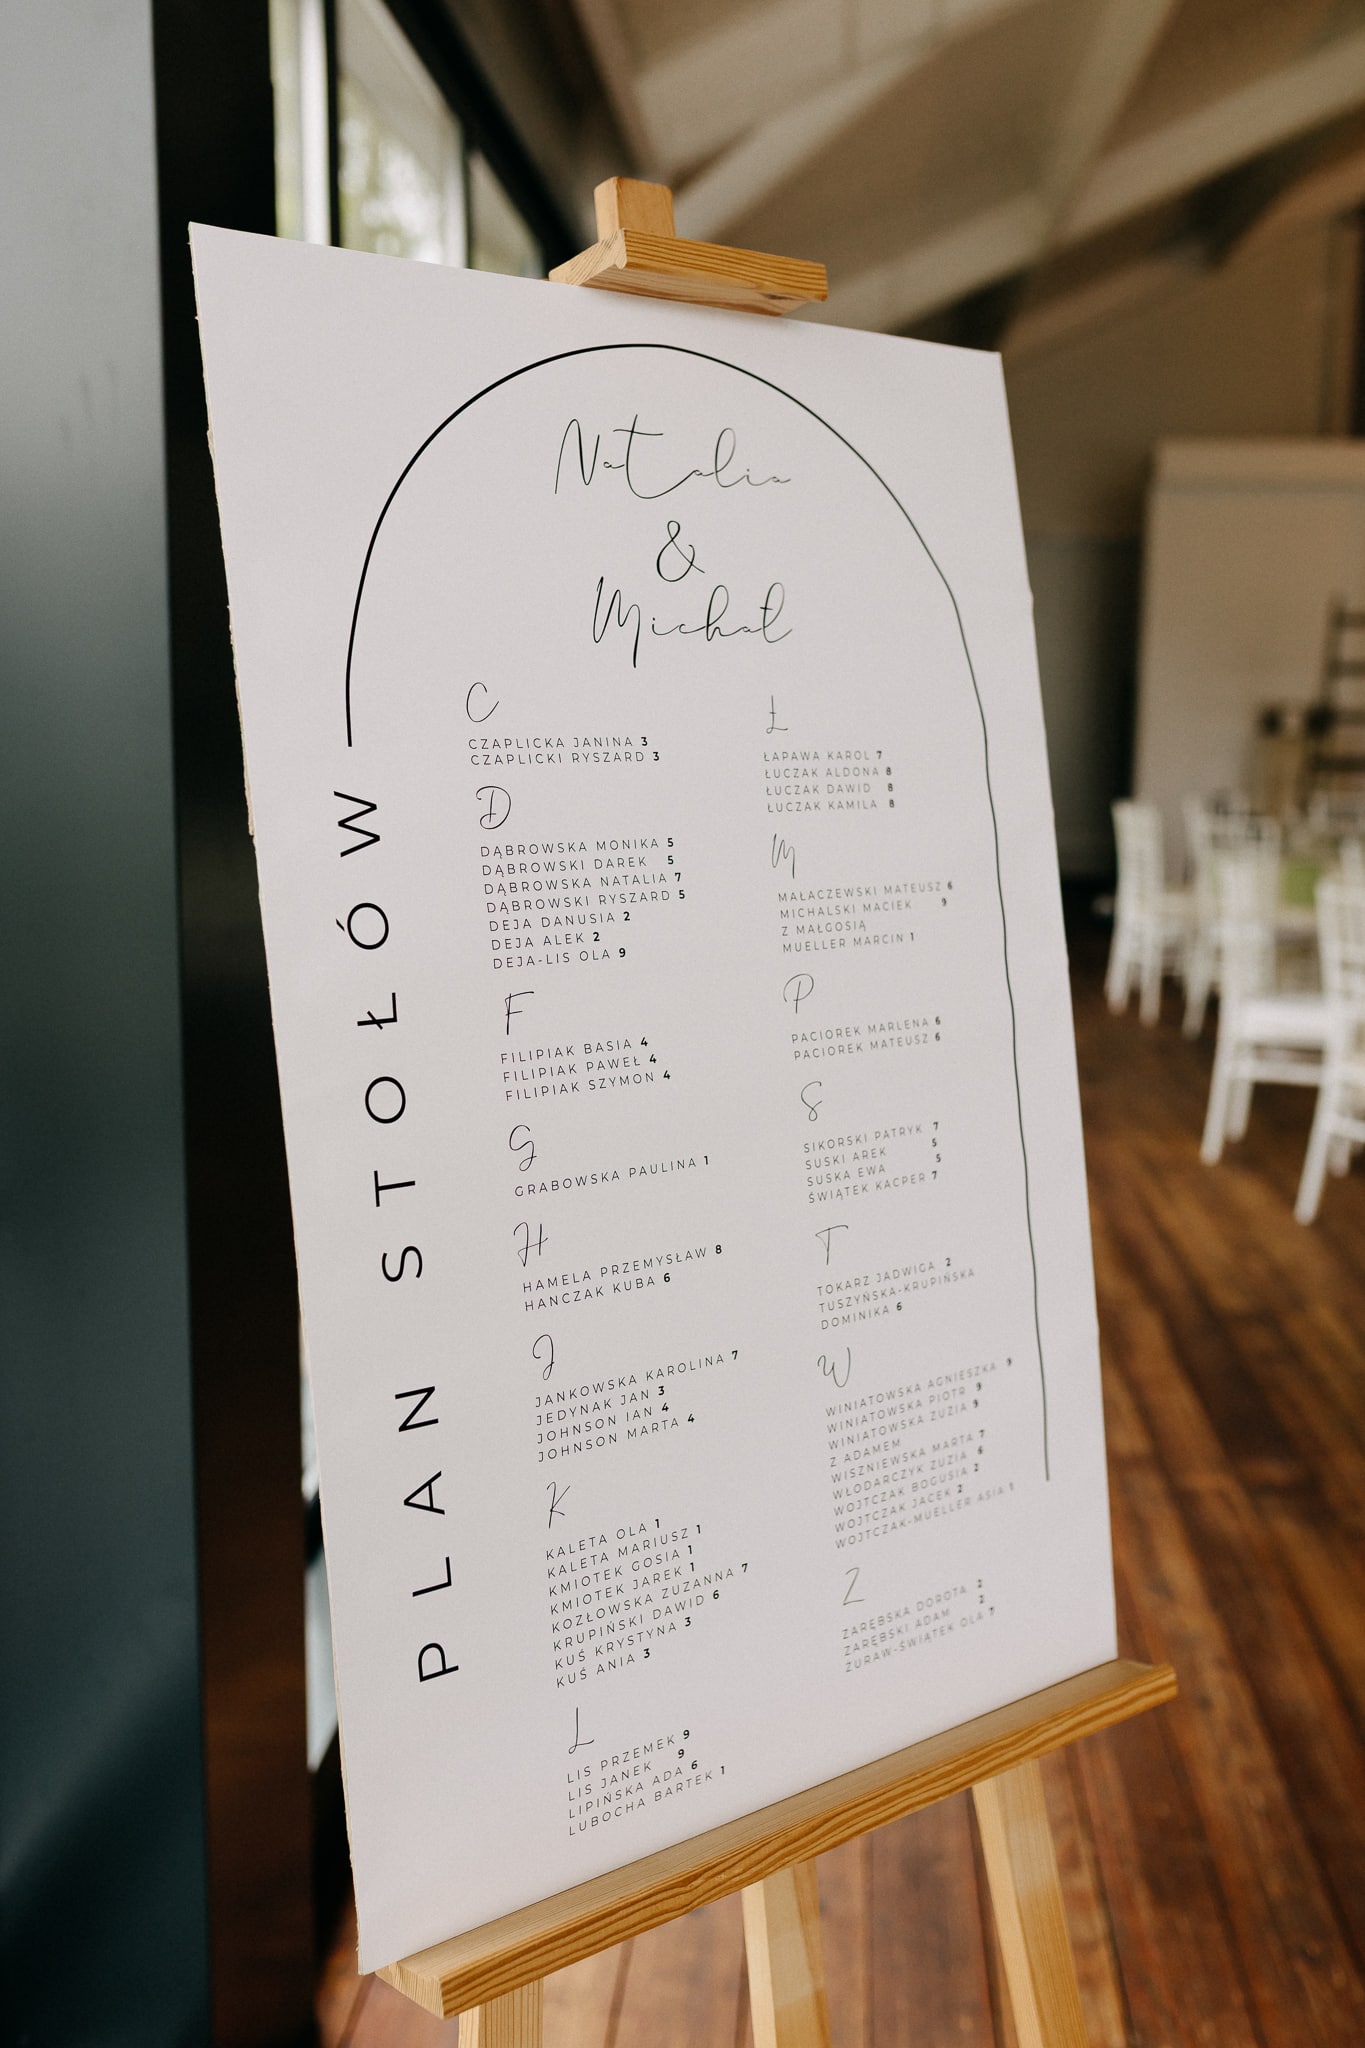 Natalia
&
Michał
PLAN STOŁÓW
C
CZAPLICKA JANINA 3
CZAPLICKI RYSZARD 3
D
DĄBROWSKA MONIKA 5
DĄBROWSKI DAREK 5
DĄBROWSKA NATALIA 7
DĄBROWSKI RYSZARD 5
DEJA DANUSIA 2
DEJA ALEK 2
DEJA-LIS OLA 9
F
FILIPIAK BASIA 4
FILIPIAK PAWEŁ 4
FILIPIAK SZYMON 4
G
GRABOWSKA PAULINA 1
H
HAMELA PRZEMYSŁAW 8
HANCZAK KUBA 6
J
JANKOWSKA KAROLINA 7
JEDYNAK JAN 3
JOHNSON IAN 4
JOHNSON MARTA 4
K
KALETA OLA 1
KALETA MARIUSZ 1
KMIOTEK GOSIA 1
KMIOTEK JAREK 1
KOZŁOWSKA ZUZANNA 7
KRUPIŃSKI DAWID 6
KUŚ KRYSTYNA 3
KUŚ ANIA 3
L
LIS PRZEMEK 9
LIS JANEK 9
LIPIŃSKA ADA 6
LUBOCHA BARTEK 1
Ł
ŁAPAWA KAROL 7
ŁUCZAK ALDONA 8
ŁUCZAK DAWID 8
ŁUCZAK KAMILA 8
M
MAŁACZEWSKI MATEUSZ 6
MICHALSKI MACIEK 9
Z MAŁGOSIĄ
MUELLER MARCIN 1
P
PACIOREK MARLENA 6
PACIOREK MATEUSZ 6
S
SIKORSKI PATRYK 7
SUSKI AREK 5
SUSKA EWA 5
ŚWIĄTEK KACPER 7
T
TOKARZ JADWIGA 2
TUSZYŃSKA-KRUPIŃSKA
DOMINIKA 6
W
WINIATOWSKA AGNIESZKA 9
WINIATOWSKA PIOTR 9
WINIATOWSKA ZUZIA 9
Z ADAMEM
WISZNIEWSKA MARTA 7
WŁODARCZYK ZUZIA 6
WOJTCZAK BOGUSIA 2
WOJTCZAK JACEK 2
WOJTCZAK-MUELLER ASIA 1
Z
ZARĘBSKA DOROTA 2
ZARĘBSKI ADAM 2
ŻURAW-ŚWIĄTEK OLA 7